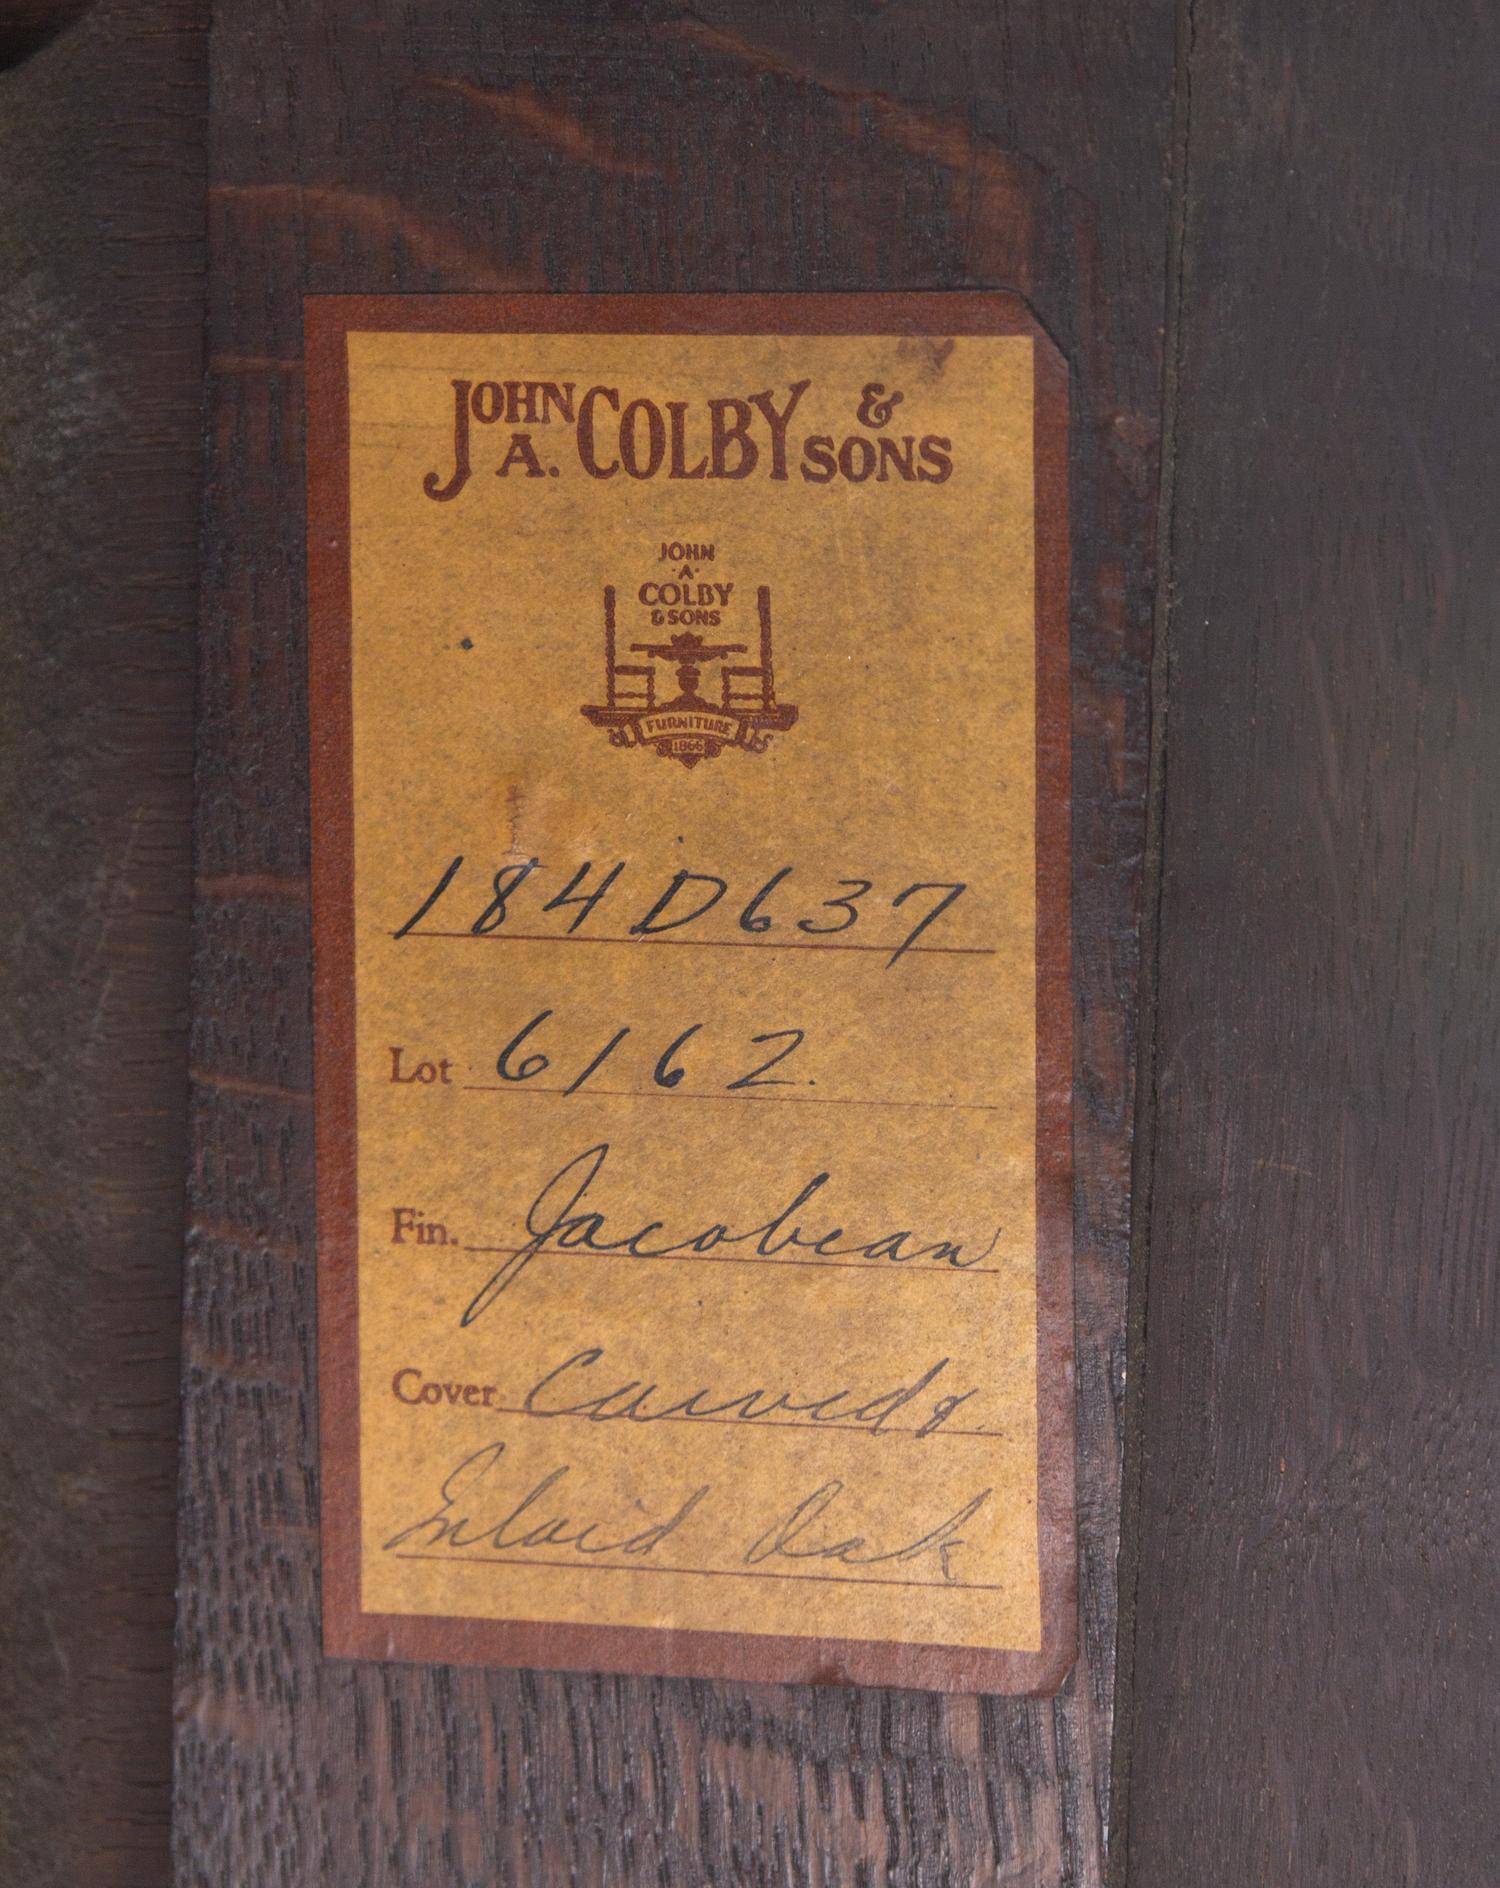 JOHN A. COLBY & SONS
JOHN
·A·
COLBY
& SONS
FURNITURE
1866
184D637
Lot 6162.
Fin. Jacobean
Cover Carved &
Inlaid Oak